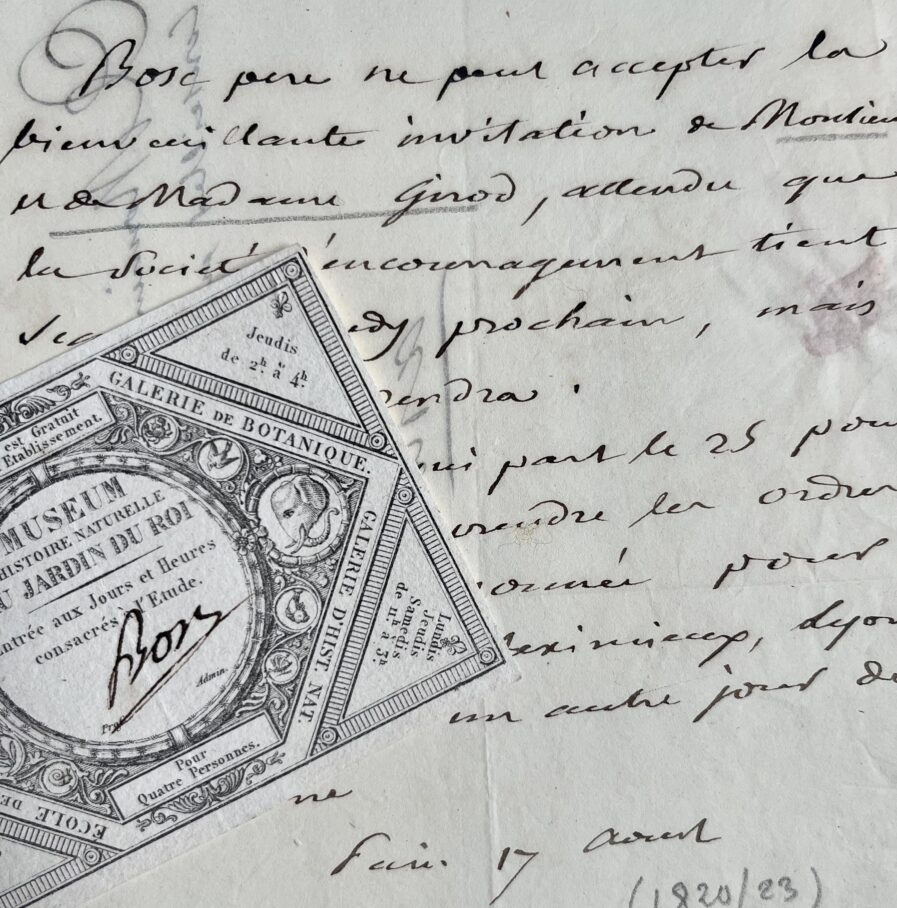 Bosc pere ne peut accepter la
bienveillante invitation de Monsieur
et de Madame Girod, attendu que
la Société d'encouragement tient
prochain, mais
rendra.
qui part le 25 pour
prendre les ordres
pour
Meximieux, Lyon
un autre jour de
ne
Paris. 17 Aoust
(1820/23)
Jeudis
de 2h à 4h.
GALERIE DE BOTANIQUE.
est Gratuit
Etablissement.
MUSEUM
HISTOIRE NATURELLE
AU JARDIN DU ROI
Entrée aux Jours et Heures
consacrés à l'Etude.
Bosc
Prof. Admin.
GALERIE D'HIST. NAT.
Lundis
Jeudis
Samedis
de 11h à 3h.
Pour
Quatre Personnes.
ECOLE DE